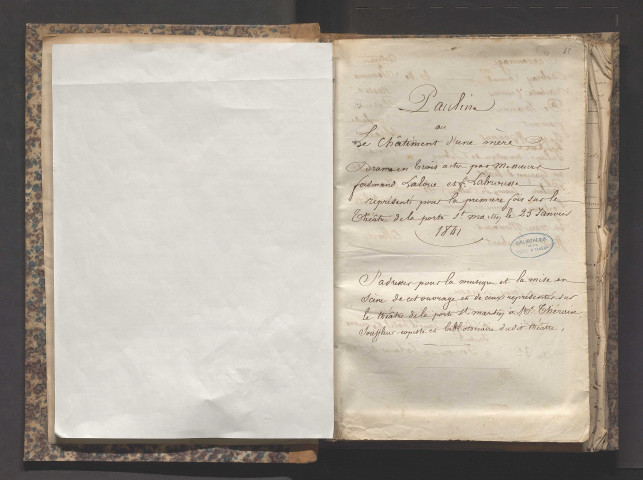 Pauline
ou
Le Châtiment d'une mère
Drame en trois actes par Messieurs
ferdinand Laloue et f. Labrousse
représenté pour la première fois sur le
théâtre de la porte St martin, le 25 Janvier
1841
S'adresser pour la musique et la mise en
Scène de cet ouvrage et de ceux représentés sur
le théâtre de la porte St martin, à Mr.
Souffleur copiste et bibliothécaire dudit théâtre.